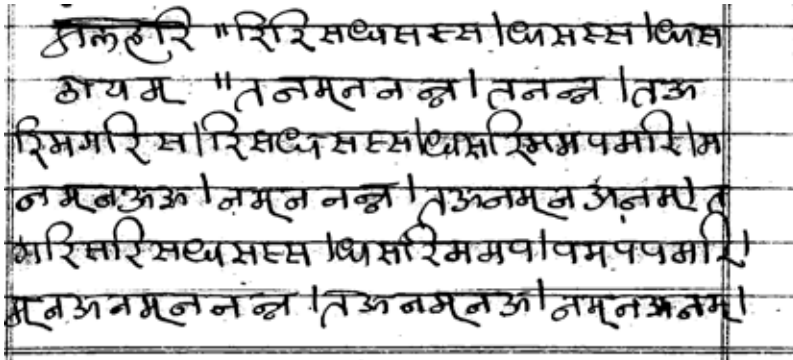 मलहरि ॥ रिरिसधसस्स । धसस्स । धस
ठायम् ॥ तनम्तनन्न । तनन्न । तअ
रिमगरिस । रिसधसस्स । धसरिममपमरि । म
नम्नअअ । नम्ननन्न । तअनम्नअनम् । त
गरिसरिसधसस्स । धसरिममप । पमपपमरि ।
म्नअनम्ननन्न । तअनम्नअ । नम्नअनम् ।